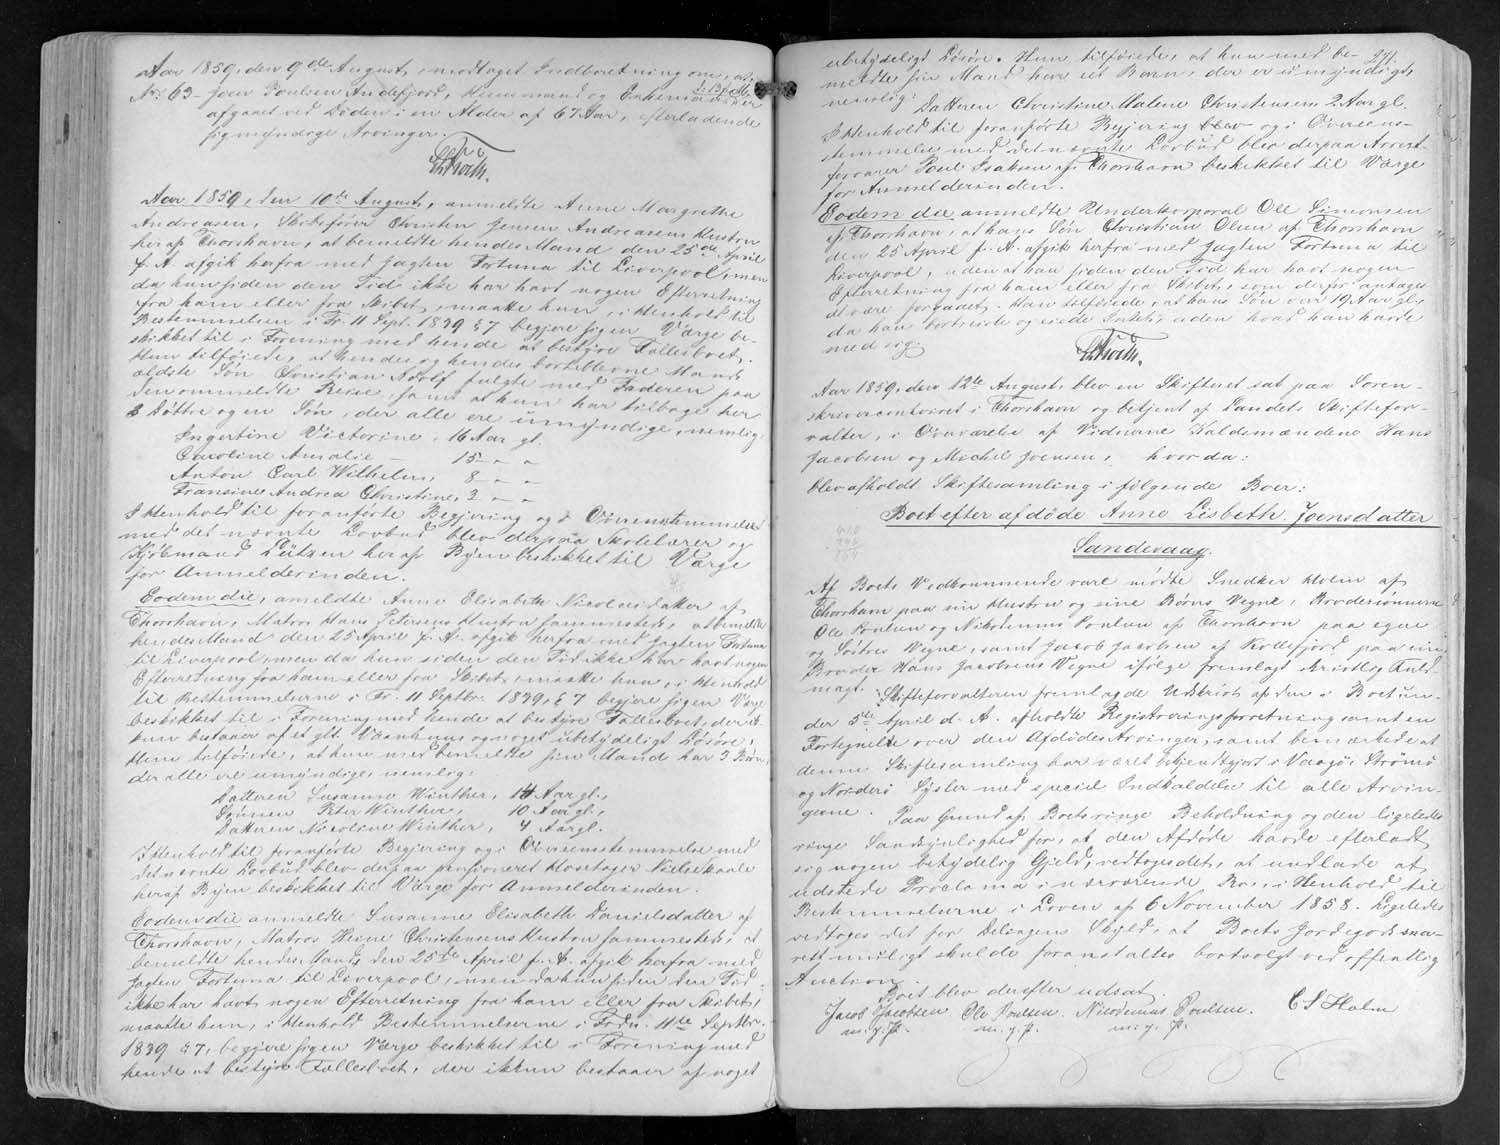 Aar 1859, den 9de August, modtaget Indberetning om, at
No. 63 – Joen Poulsen Andefjord, Huusmand og Enkemand er
afgaaet ved Døden i en Alder af 67 Aar, efterladende
sig myndige Arvinger.
Aar 1859, den 10de August, anmeldte Anne Margrethe
Andreasen, Skibsfører Christen Jensen Andreasens Hustru
her af Thorshavn, at bemeldte hendes Mand den 25de April
f. A. afgik herfra med Jagten Fortuna til Liverpool, men
da hun siden den Tid ikke har havt nogen Efterretning
fra ham eller fra Skibet, maatte hun, i Henhold til
Bestemmelsen i Fr. 11 Sept. 1839 § 7 begjere sig en Værge be-
skikket til i Forening med hende at bestyre Fællesboet.
Hun tilføiede, at hendes og hendes bortblevne Mands
ældste Søn Christian Adolf fulgte med Faderen paa
den ommeldte Reise, samt at hun har tilbage her
3 Døttre og en Søn, der alle ere umyndige, nemlig:
Ingertine Victorine, 16 Aar gl.
Caroline Amalie – 15 – "
Anton Carl Wilhelm, 8 – "
Fransine Andrea Christine, 2 – "
I Henhold til foranførte Begjering og i Overenstemmelse
med det nævnte Lovbud blev derpaa Skolelærer og
Lützen her af Byen beskikket til Værge
for Anmelderinden.
Eodem die, anmeldte Anne Elisabeth Nicolaisdatter af
Thorshavn, Matros Hans Petersens Hustru sammesteds, at bemeldte
hendes Mand den 25 April f. A. afgik herfra med Jagten Fortuna
til Liverpool, men da hun siden den Tid ikke har havt nogen
Efterretning fra ham eller fra Skibet, maatte hun, i Henhold
til Bestemmelserne i Fr. 11 Septbr. 1839, § 7 begjere sig en Værge
beskikket til i Forening med hende at bestyre Fællesboet, der
kun bestaaer af et glt. Vaanhuus og noget ubetydeligt Løsøre.
Hun tilføiede, at hun med bemeldte sin Mand har 3 Børn,
der alle ere umyndige, nemlig:
Datteren Susanne Winther, 14 Aar gl.,
Sønnen Peter Winther, 10 Aar gl.,
Datteren Nicoline Winther, 4 Aar gl.
I Henhold til foranførte Begjering og i Overensstemmelse med
det nævnte Lovbud blev derpaa pensioneret Niels Skaale
her af Byen beskikket til Værge for Anmelderinden.
Eodem die anmeldte Susanne Elisabeth Danielsdatter af
Thorshavn, Matros Heine Christensens Hustru sammesteds, at
bemeldte hendes Mand den 25de April f. A. afgik herfra med
Jagten Fortuna til Liverpool, men da hun siden den Tid
ikke har havt nogen Efterretning fra ham eller fra Skibet,
maatte hun, i Henhold Bestemmelserne i Frdn. 11te Septbr.
1839 § 7, begjere sig en Værge beskikket til i Forening med
hende at bestyre Fællesboet, der ikkun bestaaer af noget
271.
ubetydeligt Løsøre. Hun tilføiede, at hun med be-
meldte sin Mand har eet Barn, der er umyndigt,
nemlig:
Datteren Christine Maline Christensen, 2 Aar gl.
I Henhold til foranførte Begjering og i Overens-
stemmelse med det nævnte Lovbud blev derpaa Arrest-
forvarer Poul Isaksen af Thorshavn beskikket til Værge
for Anmelderinden.
Eodem die anmeldte Underkorporal Ole Simonsen
af Thorshavn, at hans Søn Christian Olsen af Thorshavn
den 25 April f. A. afgik herfra med Jagten Fortuna til
Liverpool, uden at han siden den Tid har havt nogen
Efterretning fra ham eller fra Skibet, som derfor antages
at være forgaaet. Han tilføiede, at hans Søn var 19 Aar gl.,
da han bortreiste og eiede Intet, uden hvad han havde
med sig.
Aar 1859, den 12te August, blev en Skifteret sat paa Soren-
skrivercontoiret i Thorshavn og betjent af Landets Skiftefor-
valter, i Overværelse af Vidnerne Kaldsmændene Hans
Jacobsen og Michel Joensen, hvorda:
blev afholdt Skiftesamling i følgende Boer:
Boet efter afdøde Anne Lisbeth Joensdatter
Sandevaag.
Af Boets Vedkommende vare mødte Snedker Holm af
Thorshavn paa sin Hustru og sine Børns Vegne, Brodersønnerne
Ole Poulsen og Nikodemus Poulsen af Thorshavn paa egne
og Søstres Vegne, samt Jacob Jacobsen af Kollefjord paa sin
Broder Hans Jacobsens Vegne ifølge fremlagt skriftlig Fuld-
magt. Skifteforvalteren fremlagde Udskrift af den i Boet un-
der 5te April d. A. afholdte Registreringsforretning samt en
Fortegnelse over den Afdødes Arvinger, samt bemærkede at
denne Skiftesamling har været bekjendtgjort i Vaagø, Strømø
og Norderø Sysler med speciel Indkaldelse til alle Arvin-
gerne. Paa Grund af Boets ringe Beholdning og den ligeledes
ringe Sandsynlighed for, at den Afdøde havde efterladt
sig nogen betydelig Gjeld, vedtoges det, at undlade at
udstede Proclama i nærværende Bo, i Henhold til
Bestemmelserne i Loven af 6 November 1858. Ligeledes
vedtoges det for Delingens Skyld, at Boets Jordegods sna-
rest muligt skulde foranstaltes bortsolgt ved offentlig
Auction.
Boet blev derefter udsat.
Jacob Jacobsen Ole Poulsen. Nicodemus Poulsen. C S Holm
m. f. P. m. f. P. m. f. P.